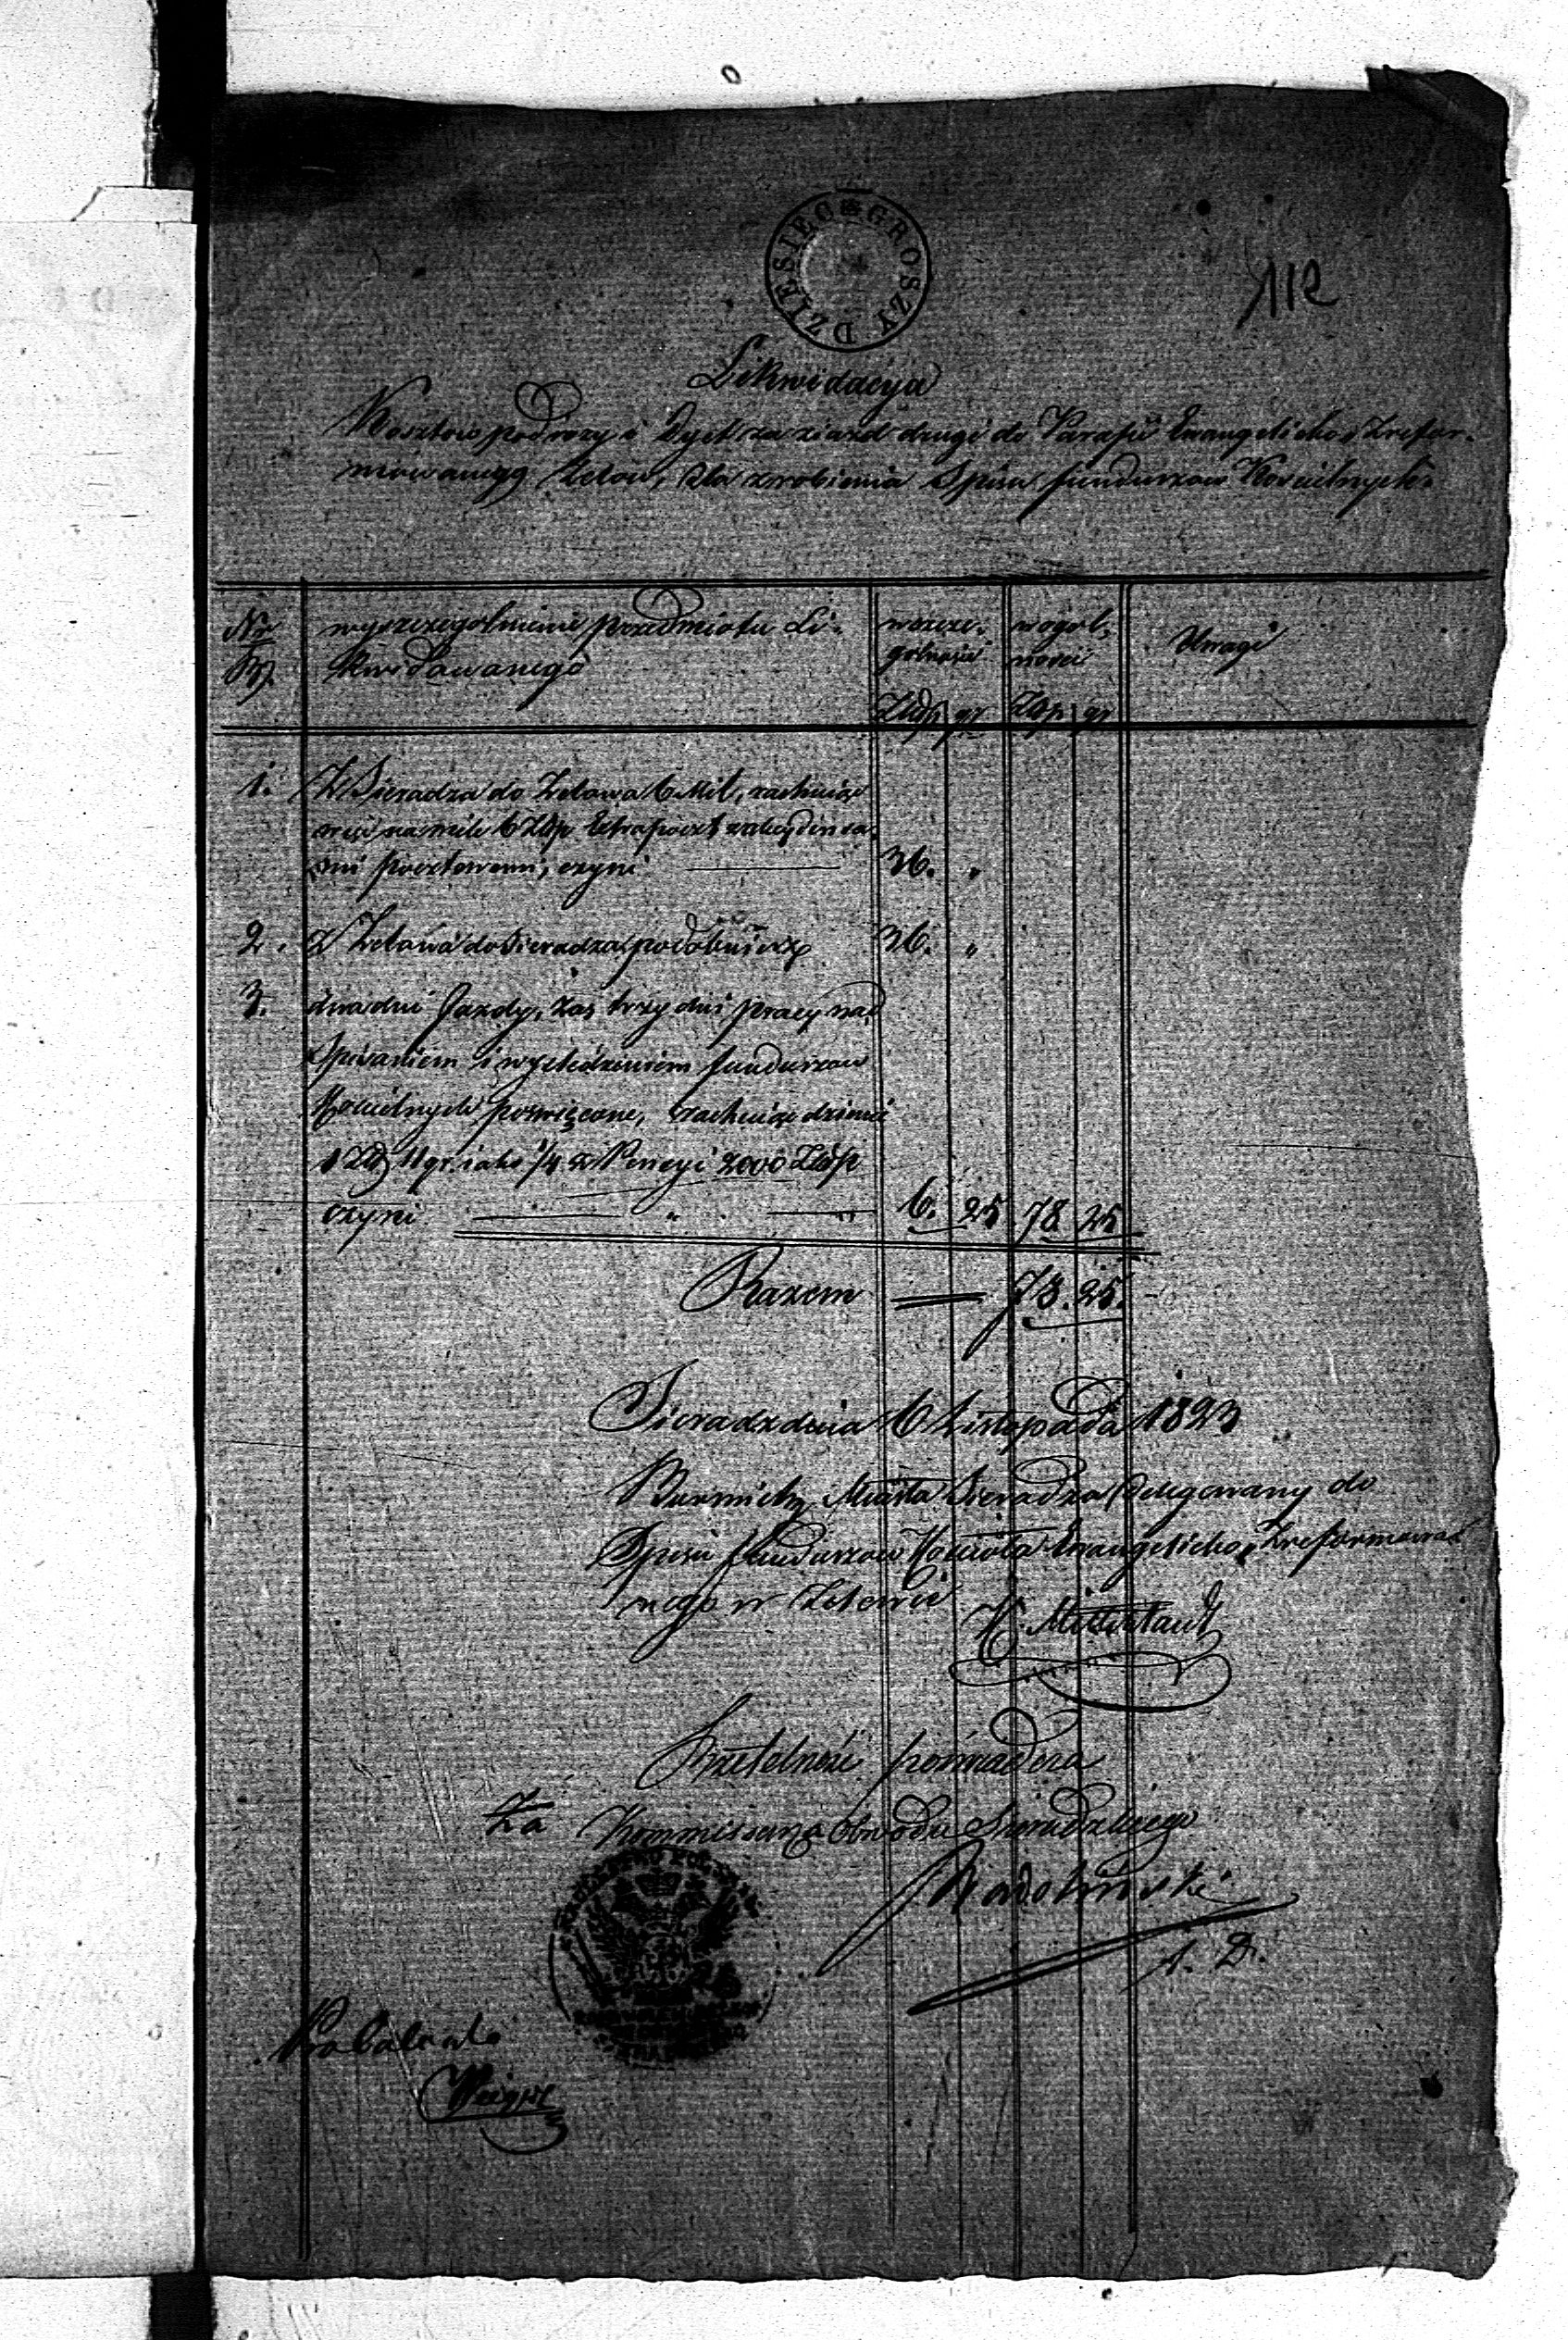 DZIESIĘC GROSZY
112
Likwidacya
Kosztow podrozy i Dyet za ziazd drugi do Parafii Ewangelicko Zrefor-
mowaney Zelow, dla zrobienia Spisu funduszow Koscielnych.
Nr wyszczegolnienie przedmiotu Li- wszcze- wogol- Uwagi
kwidowanego golnosci nosci
Złp gr Złp gr
1. Z Sieradza do Zelowa 6 Mil, rachuiąc
na mile 6 Złp Extrapoczt
pocztowemi, czyni 36. "
2. Z Zelowa do Sieradza podobnież 36. "
3. dwa dni Jazdy, zas trzy dni pracy nad
Spisaniem i wysledzeniem funduszow
Koscielnych poswięcone, rachuiąc dziennie
1 Zł 11 gr. iako 1/4 z Pensyi 2000 Złp
czyni " 6. 25 78 25
Razem 78. 25.
Sieradz dnia 6 Listopada 1823
Burmistrz Miasta Sieradza Delegowany do
Spisu funduszow Kościoła Ewangelicko Zreformowa-
nego w Zelowie
Rzetelność poświadcza
Za Kommissarza Obwodu Sieradzkiego
Radolinski
A. D.